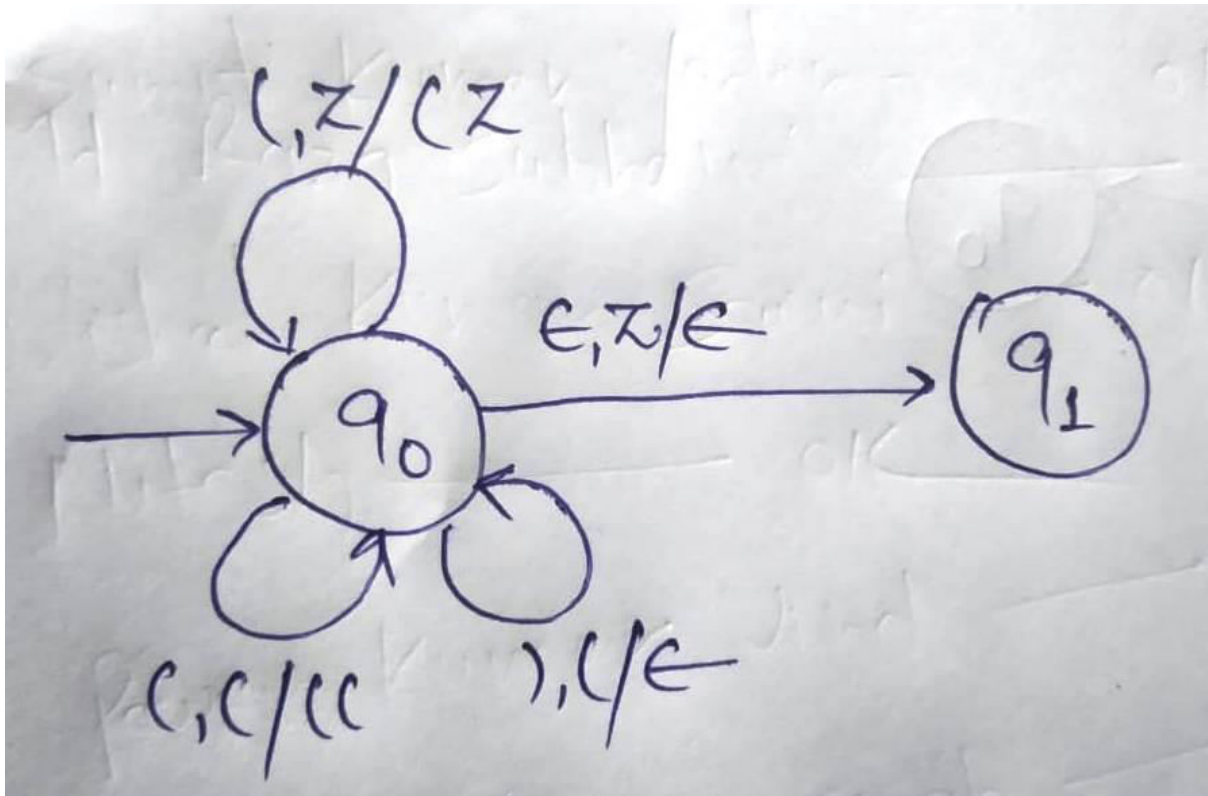 (,Z/(Z
ϵ,Z/ϵ
q0
q1
(,(/((
),(/ϵ